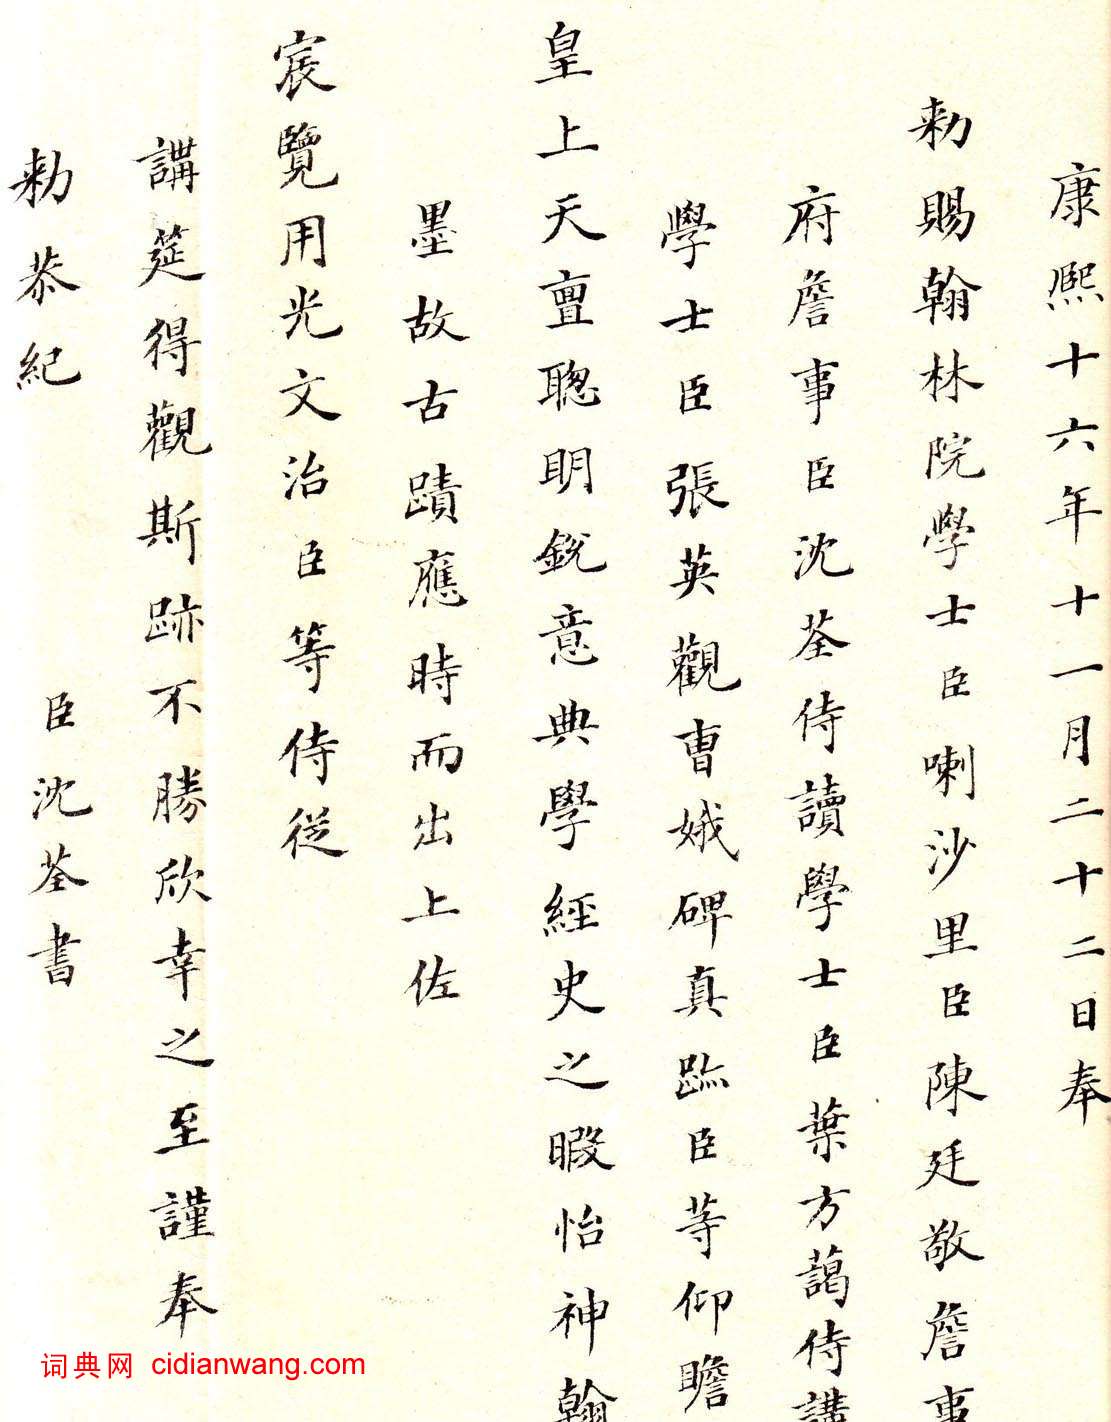 康熙十六年十一月二十二日奉
勅賜翰林院學士臣喇沙里臣陳廷敬詹事
府詹事臣沈荃侍讀學士臣葉方藹侍講
學士臣張英觀曹娥碑真跡臣等仰瞻
皇上天亶聰明銳意典學經史之暇怡神翰
墨故古蹟應時而出上佐
宸覽用光文治臣等侍從
講筵得觀斯跡不勝欣幸之至謹奉
勅恭紀 臣沈荃書
词典网 cidianwang.com